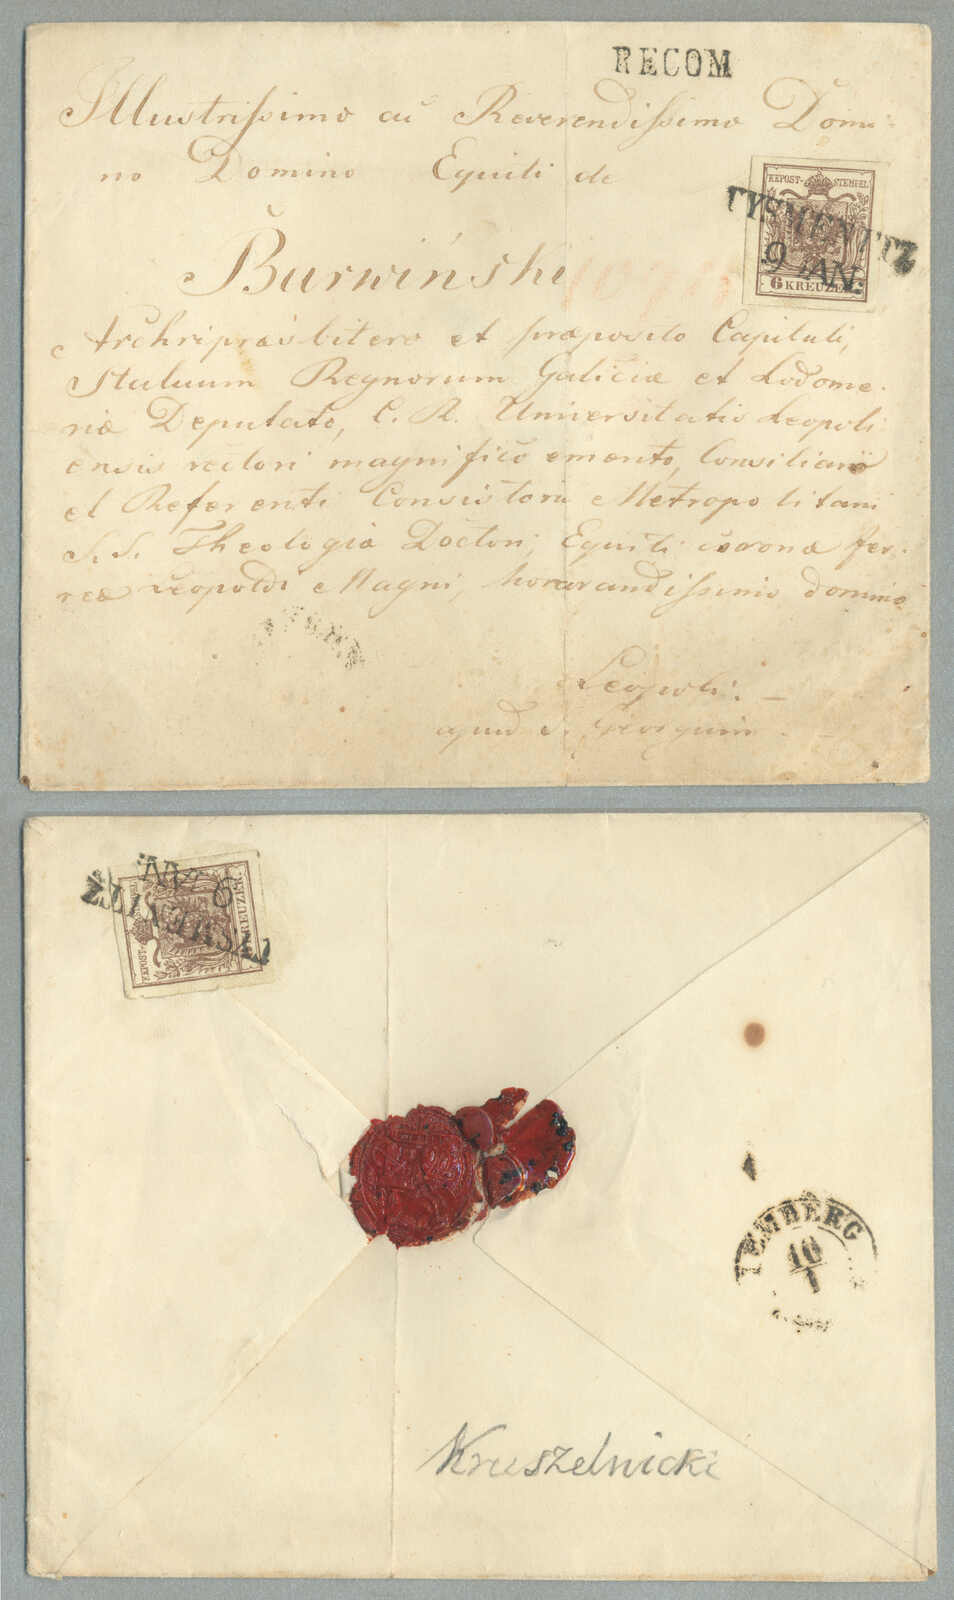 RECOM
Illustrissimo ac Reverendissimo Domi-
no Domino Equiti de
KKPOST-STEMPEL
TYSMENITZ
9 JAN.
6 KREUZER
Burwiński
Archripraesbitero et praeposito Capituli,
Statuum Regnorum Galiciae et Lodome-
riae Deputato, C. R. Universitatis Leopoli
ensis rectori magnifico emerito, Consiliario
et Referenti Consistorii Metropolitani
S. S. Theologia Doctori, Equiti coronae fer-
reae Leopoldi Magni, honorandissimo domino
Leopoli.
apud S. Georgium
TYSMENITZ
9 JAN.
KKPOST-STEMPEL
6 KREUZER
LEMBERG
10/1
Kruszelnicki